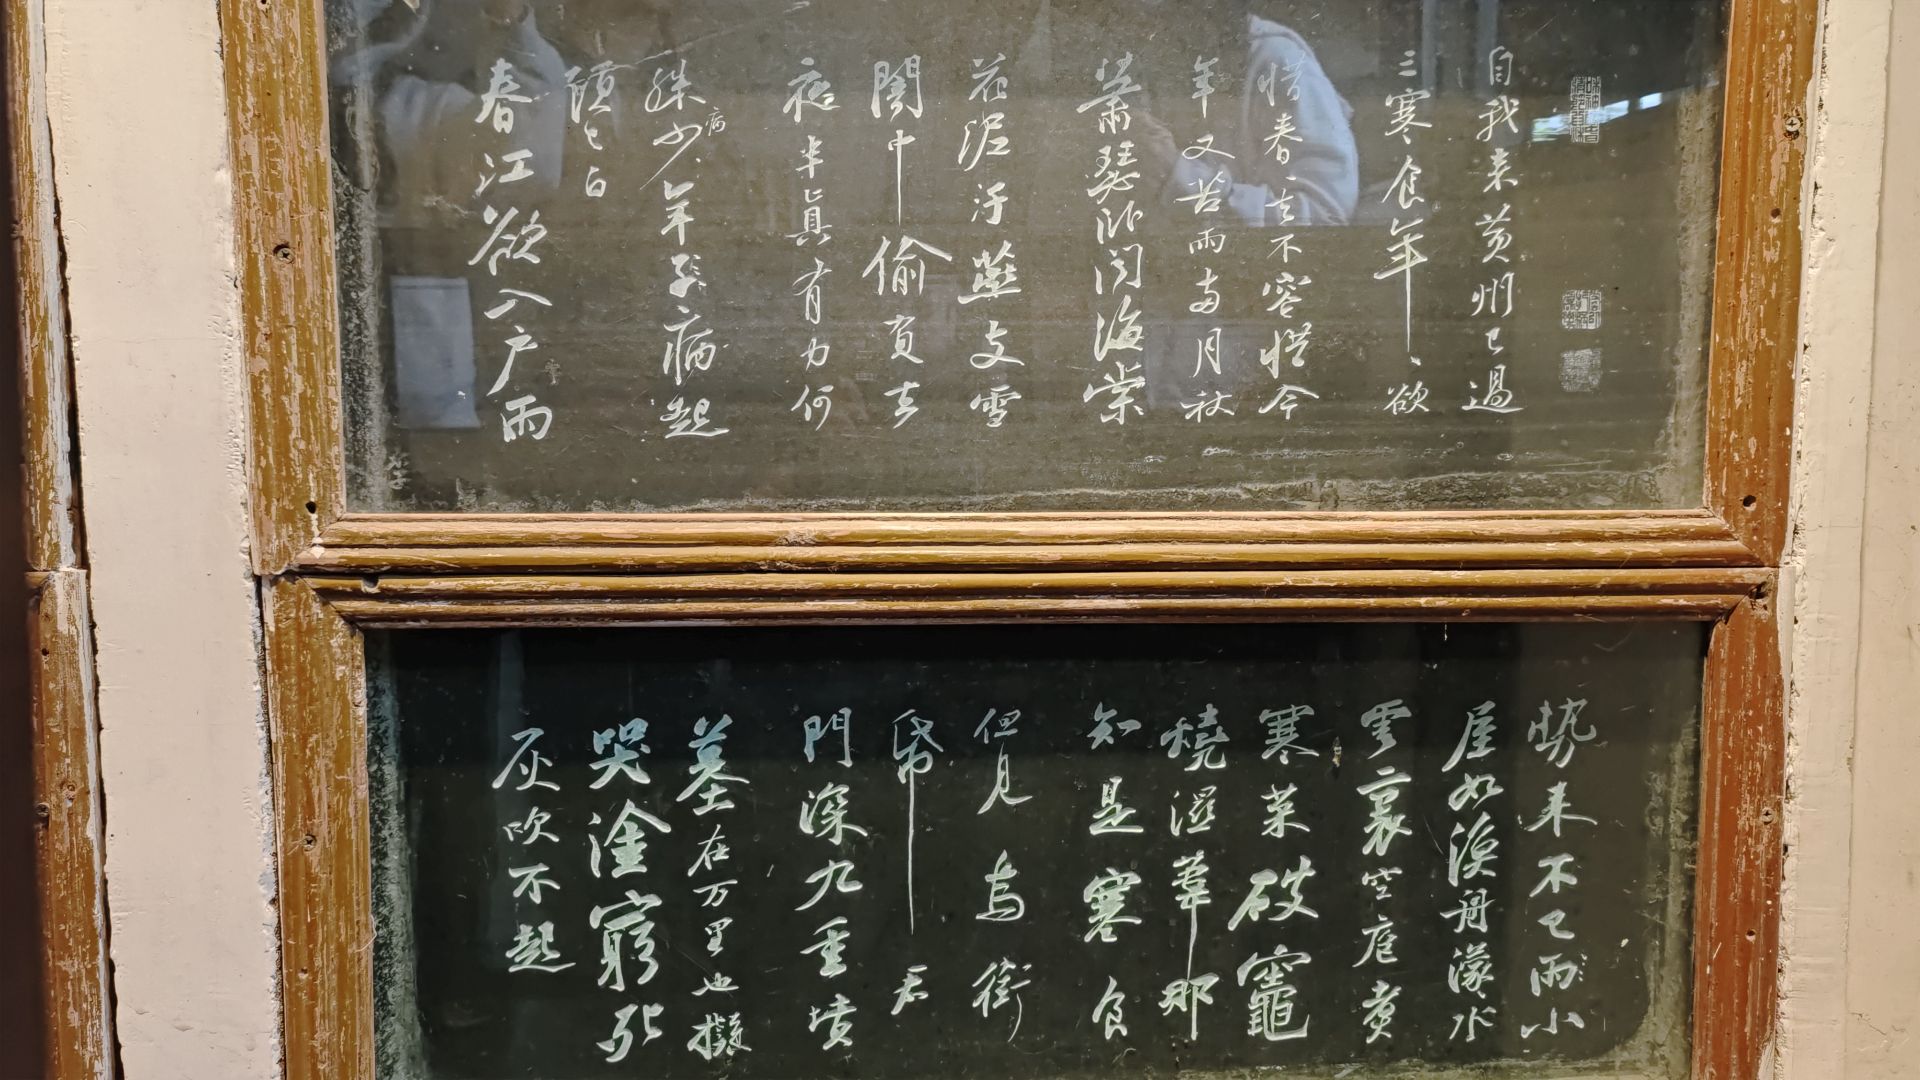 自我来黄州已過
三寒食年〻欲
惜春〻去不容惜今
年又苦雨兩月秋
蕭瑟卧聞海棠
花泥汙燕支雪
闇中偷負去
夜半真有力何
殊少年子病起
病
頭已白
春江欲入户雨
勢来不已雨小
屋如漁舟濛〻水
雲裏空庖煮
寒菜破竈
燒濕葦那
知是寒食
但見烏銜
帋君
門深九重墳
墓在万里也擬
哭塗窮死
灰吹不起